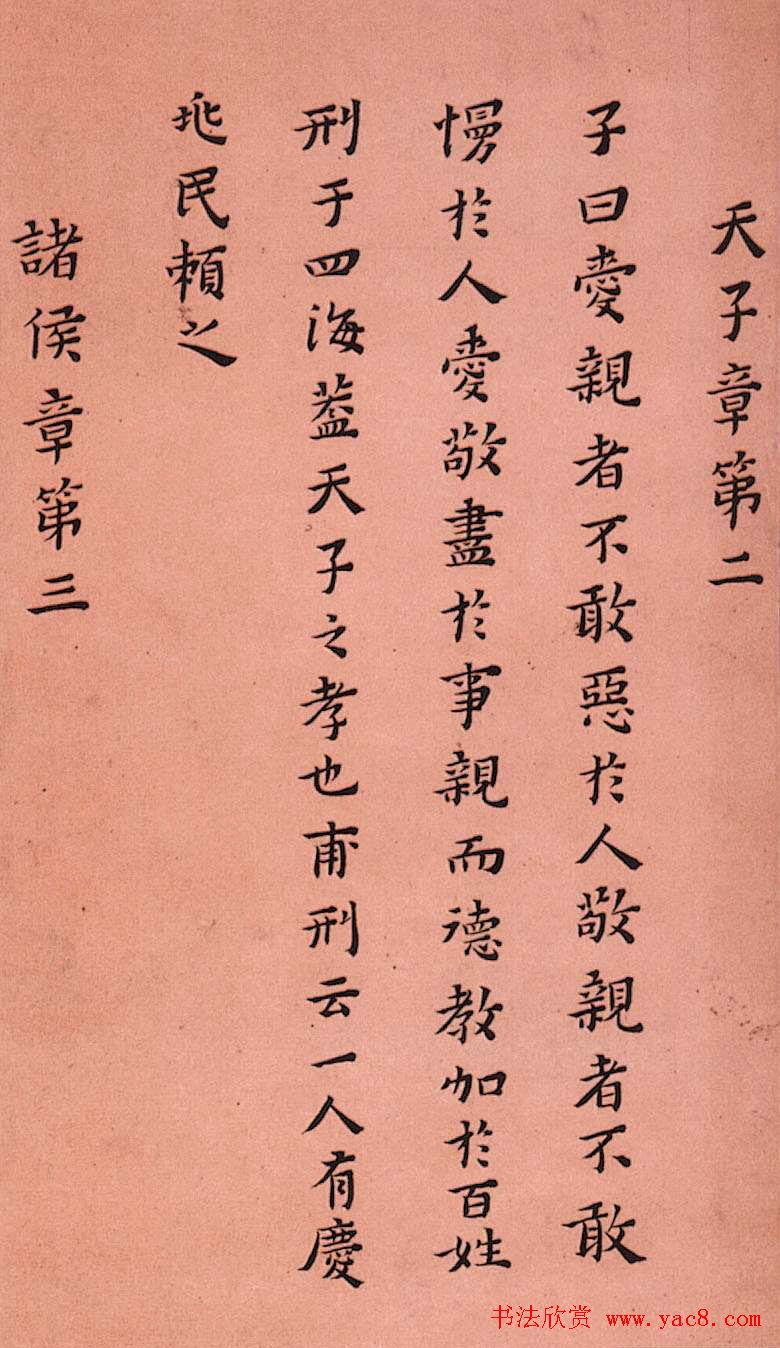 天子章第二
子曰愛親者不敢惡於人敬親者不敢
慢於人愛敬盡於事親而德教加於百姓
刑于四海蓋天子之孝也甫刑云一人有慶
兆民賴之
諸侯章第三
书法欣赏 www.yac8.com